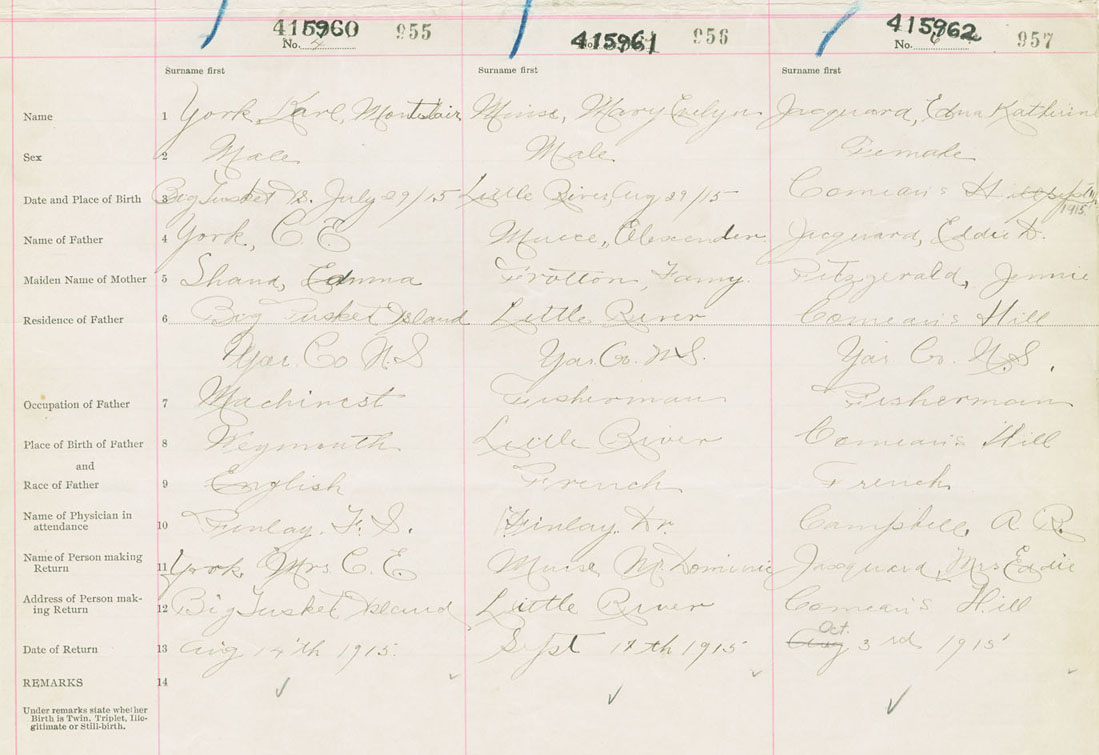 415960 955 415961 956 415962 957
No. No.
Surname first Surname first Surname first
Name 1 York, Karl, Montclair Muise, Mary Evelyn Jacquard, Edna Katherine
Sex 2 Male Male Female
Date and Place of Birth 3 Big Tusket Is. July 29/15 Little River, Aug 29/15 Comeau's Hill Sept
1915
Name of Father 4 York, C. E. Muise, Alexander Jacquard, Eddie
Maiden Name of Mother 5 Shand, Emma Frotton, Fanny. Fitzgerald, Jennie
Residence of Father 6 Big Tusket Island Little River Comeau's Hill
Yar. Co N.S Yar. Co. N.S. Yar. Co. N.S.
Occupation of Father 7 Machinest Fisherman Fisherman
Place of Birth of Father 8 Weymouth Little River Comeau's Hill
and
Race of Father 9 English French French
Name of Physician in
attendance 10 Finlay. F. S. Finlay. Dr. Campbell, A. R.
Name of Person making
Return 11 York, Mrs. C. E. Muise M. Dominic Jacquard, Mrs Eddie
Address of Person mak-
ing Return 12 Big Tusket Island Little River Comeau's Hill
Oct.
Date of Return 13 Aug 14th 1915. Sept 14th 1915 Aug 3rd 1915
REMARKS 14
Under remarks state whether
Birth is Twin, Triplet, Ille-
gitimate or Still-birth.